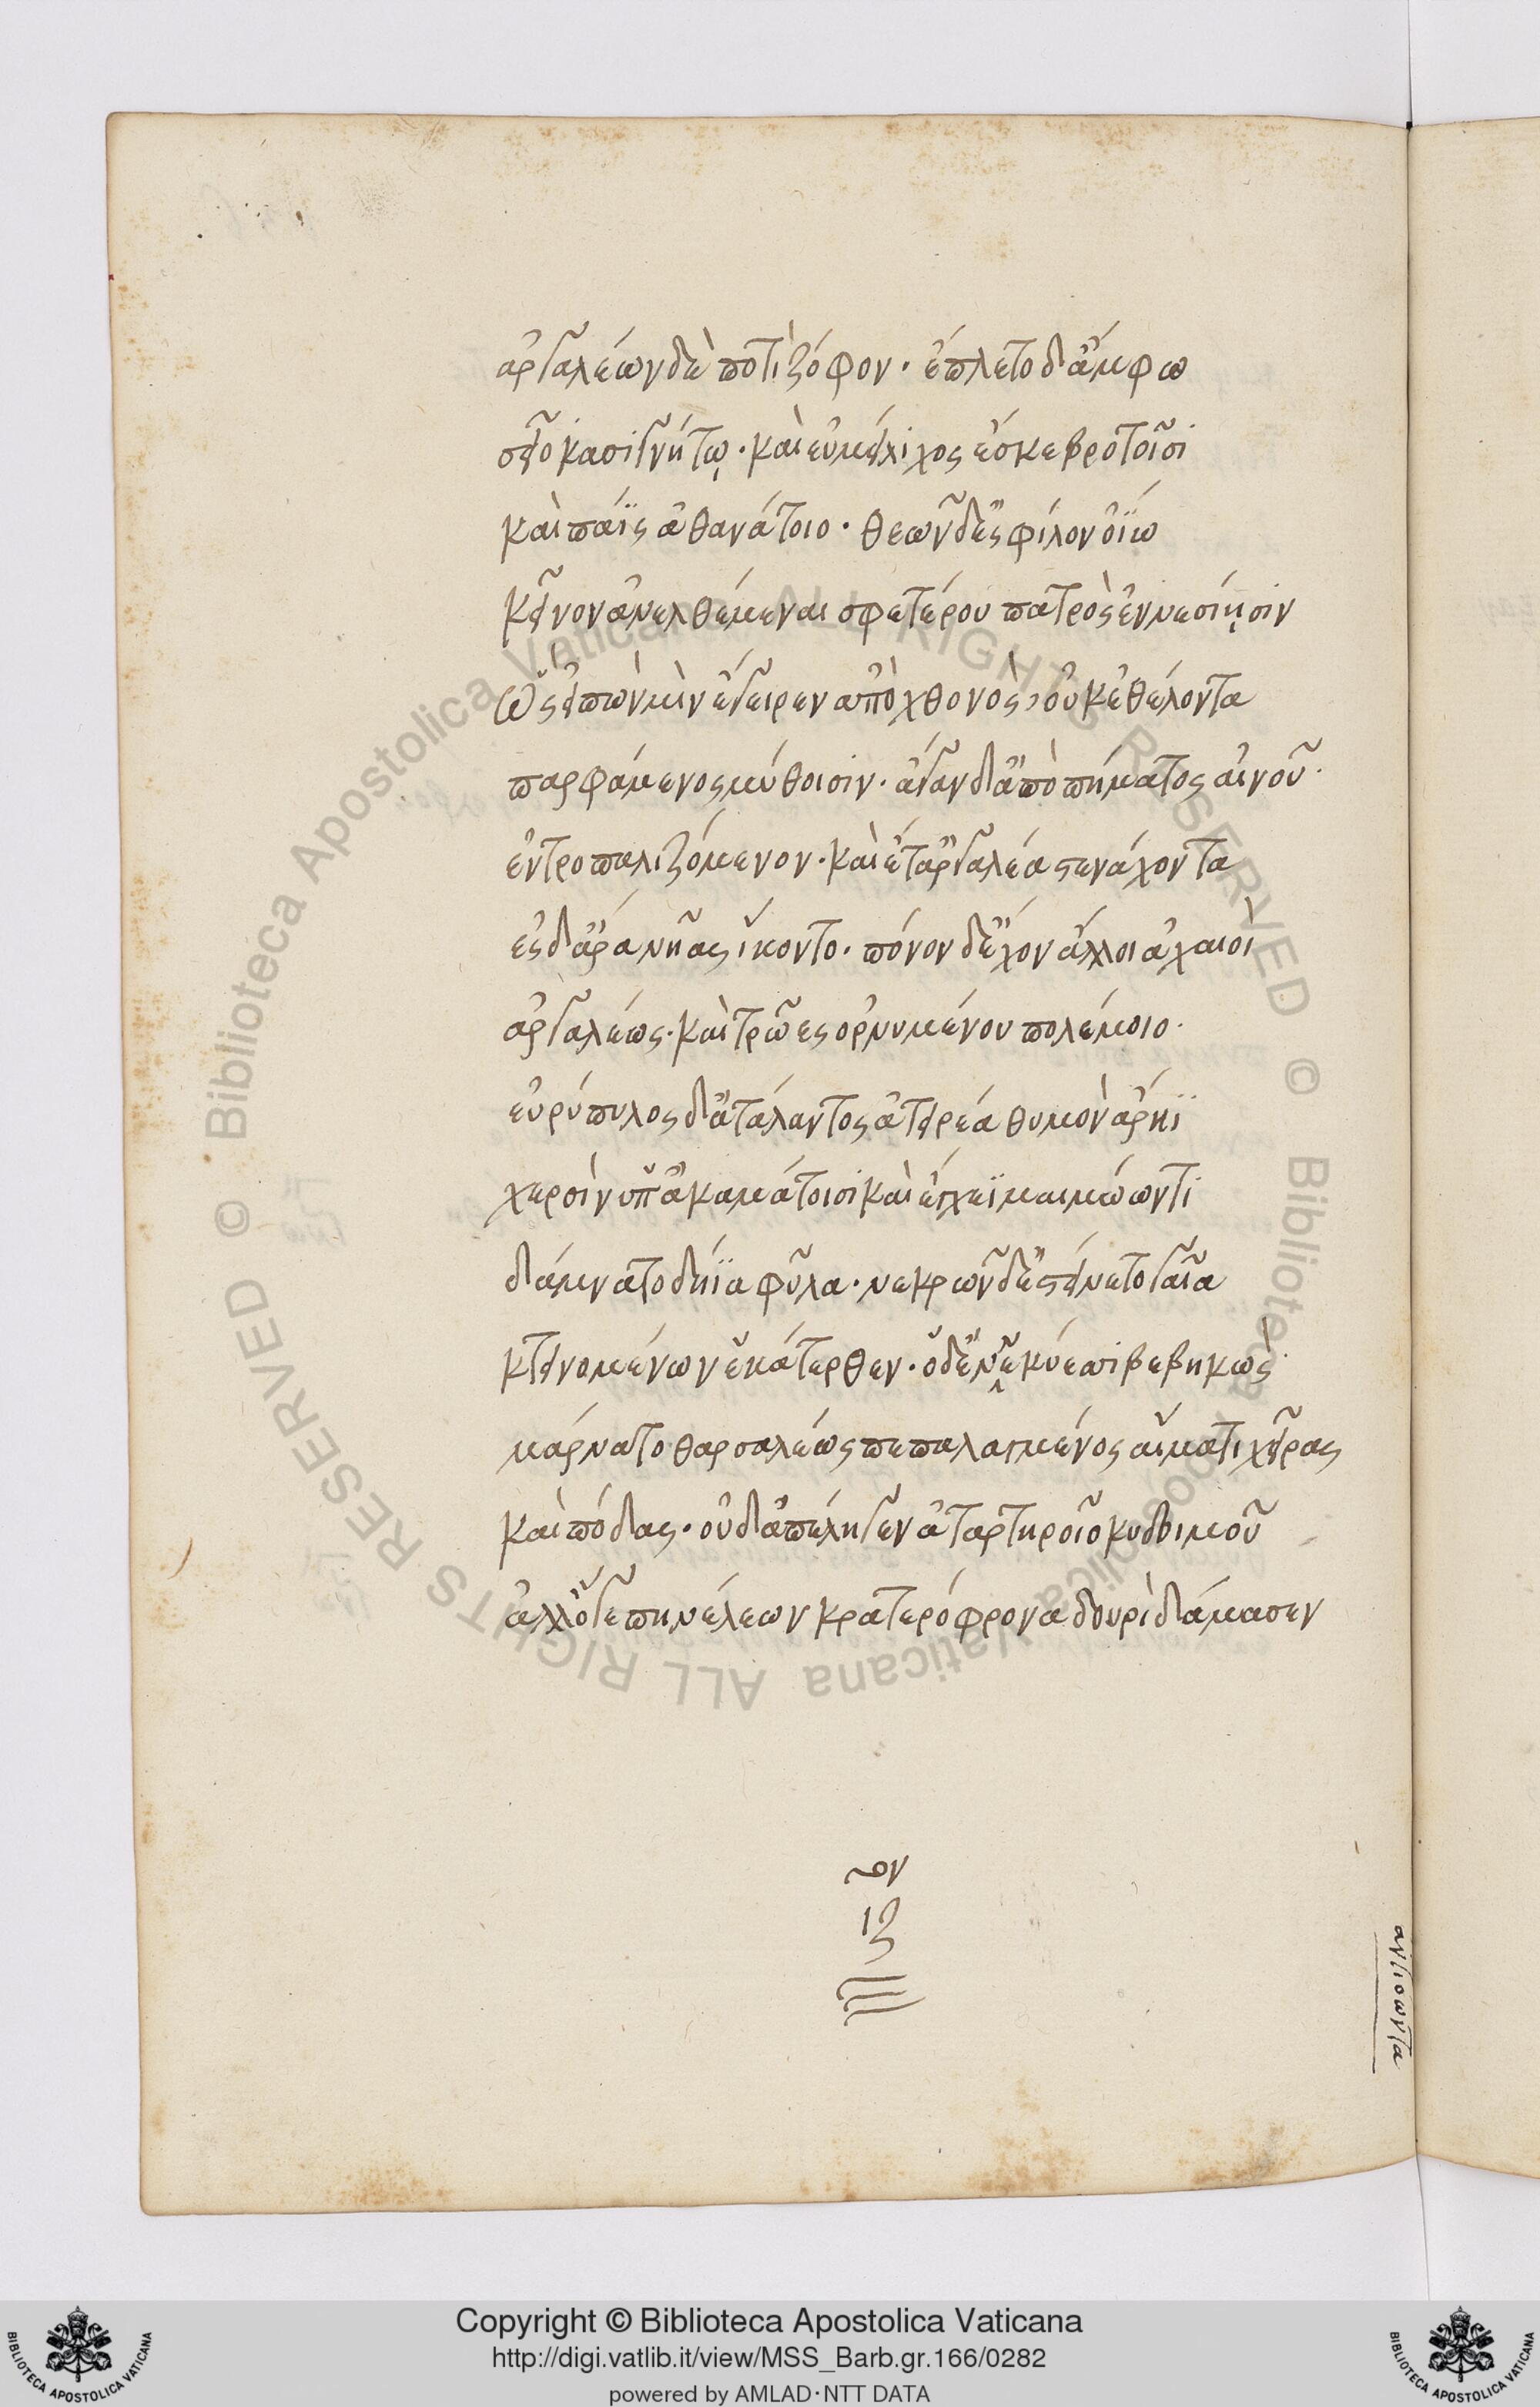 ἀργαλέων δὲ ποτὶ ζόφον· ἔπλετο δ' ἄμφω
σεῖο κασιγνήτῳ· καὶ εὐμείλιχος ἔσκε βροτοῖσι
καὶ πάϊς ἀθανάτοιο· θεῶν δ' ἐς φῖλον ὀΐω
κεῖνον ἀνελθέμεναι σφετέρου πατρὸς ἐννεσίῃσιν
Ὣς εἰπὼν μὶν ἔγειρεν ἀπὸ χθονὸς, οὐκ ἐθέλοντα
παρφάμενος μύθοισιν. ἄγαν δ' ἀπὸ πήματος αἰνοῦ.
ἐντροπαλιζόμενον· καὶ ἔτ' ἀργαλέα στενάχοντα
ἐς δ' ἄρα νῆας ἵκοντο. πόνον δ' ἔχον ἄλλοι ἀχαιοὶ
ἀργαλέως· καὶ τρῶες ὀρνυμένου πολέμοιο.
εὐρύπυλος δ' ἀτάλαντος ἀτειρέα θυμὸν ἄρηϊ
χερσὶν ὑπ' ἀκαμάτοισι καὶ ἔγχεϊ μαιμώωντι
δάμνατο δήϊα φῦλα· νεκρῶν δ' ἐστείνετο γαῖα
κτεινομένων ἑκάτερθεν. ὃ δ' ἐν νέκυε ἐπιβεβηκὼς.
μάρνατο θαρσαλέως πεπαλαγμένος αἵματι χεῖρας
καὶ πόδας· οὐδ' ἀπέληγεν ἀταρτηροῖο κυδοιμοῦ
ἀλλ' ὅγε πηνέλεων κρατερόφρονα δουρὶ δάμασεν
ἀντιόωντα
Copyright © Biblioteca Apostolica Vaticana
http://digi.vatlib.it/view/MSS_Barb.gr.166/0282
powered by AMLAD·NTT DATA
BIBLIOTECA APOSTOLICA VATICANA
BIBLIOTECA APOSTOLICA VATICANA
© Biblioteca Apostolica Vaticana ALL RIGHTS RESERVED
© Biblioteca Apostolica Vaticana ALL RIGHTS RESERVED